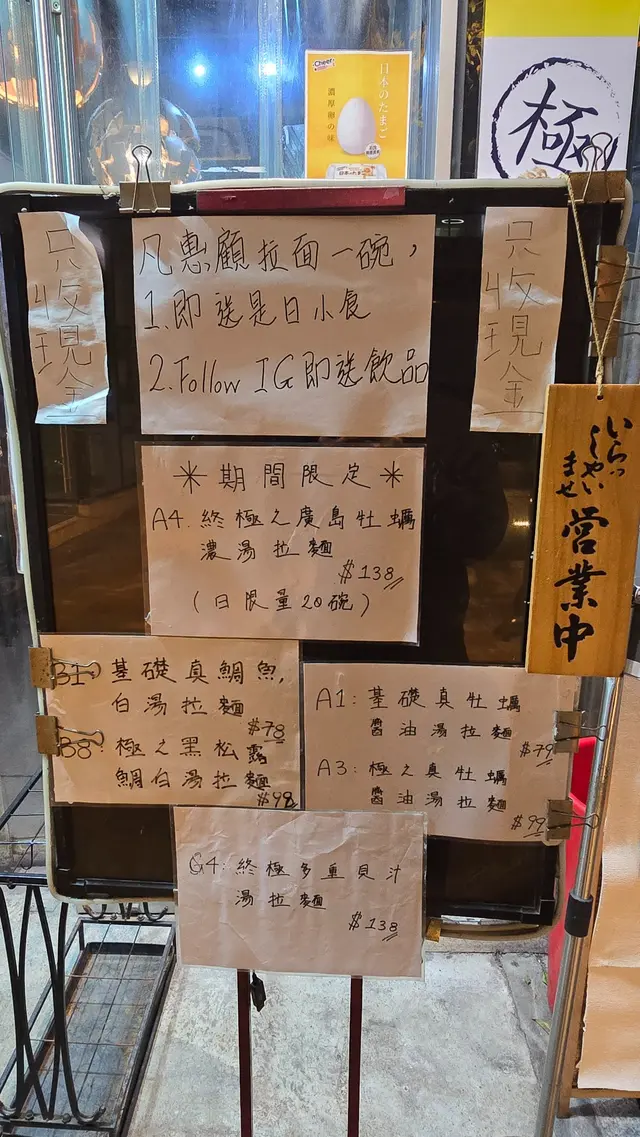 Cheer
日本のたまご
濃厚卵の味
極
只收現金
凡惠顧拉面一碗，
1.即送是日小食
2.Follow IG即送飲品
只收現金
いらっ
しゃい
ませ
営業中
＊期間限定＊
A4.終極之廣島牡蠣
濃湯拉麵
$138
(日限量20碗)
B1：基礎真鯛魚,
白湯拉麵
$78
B8：極之黑松露
鯛白湯拉麵
$98
A1：基礎真牡蠣
醬油湯拉麵
$79
A3：極之真牡蠣
醬油湯拉麵
$99
G4：終極多重貝汁
湯拉麵
$138